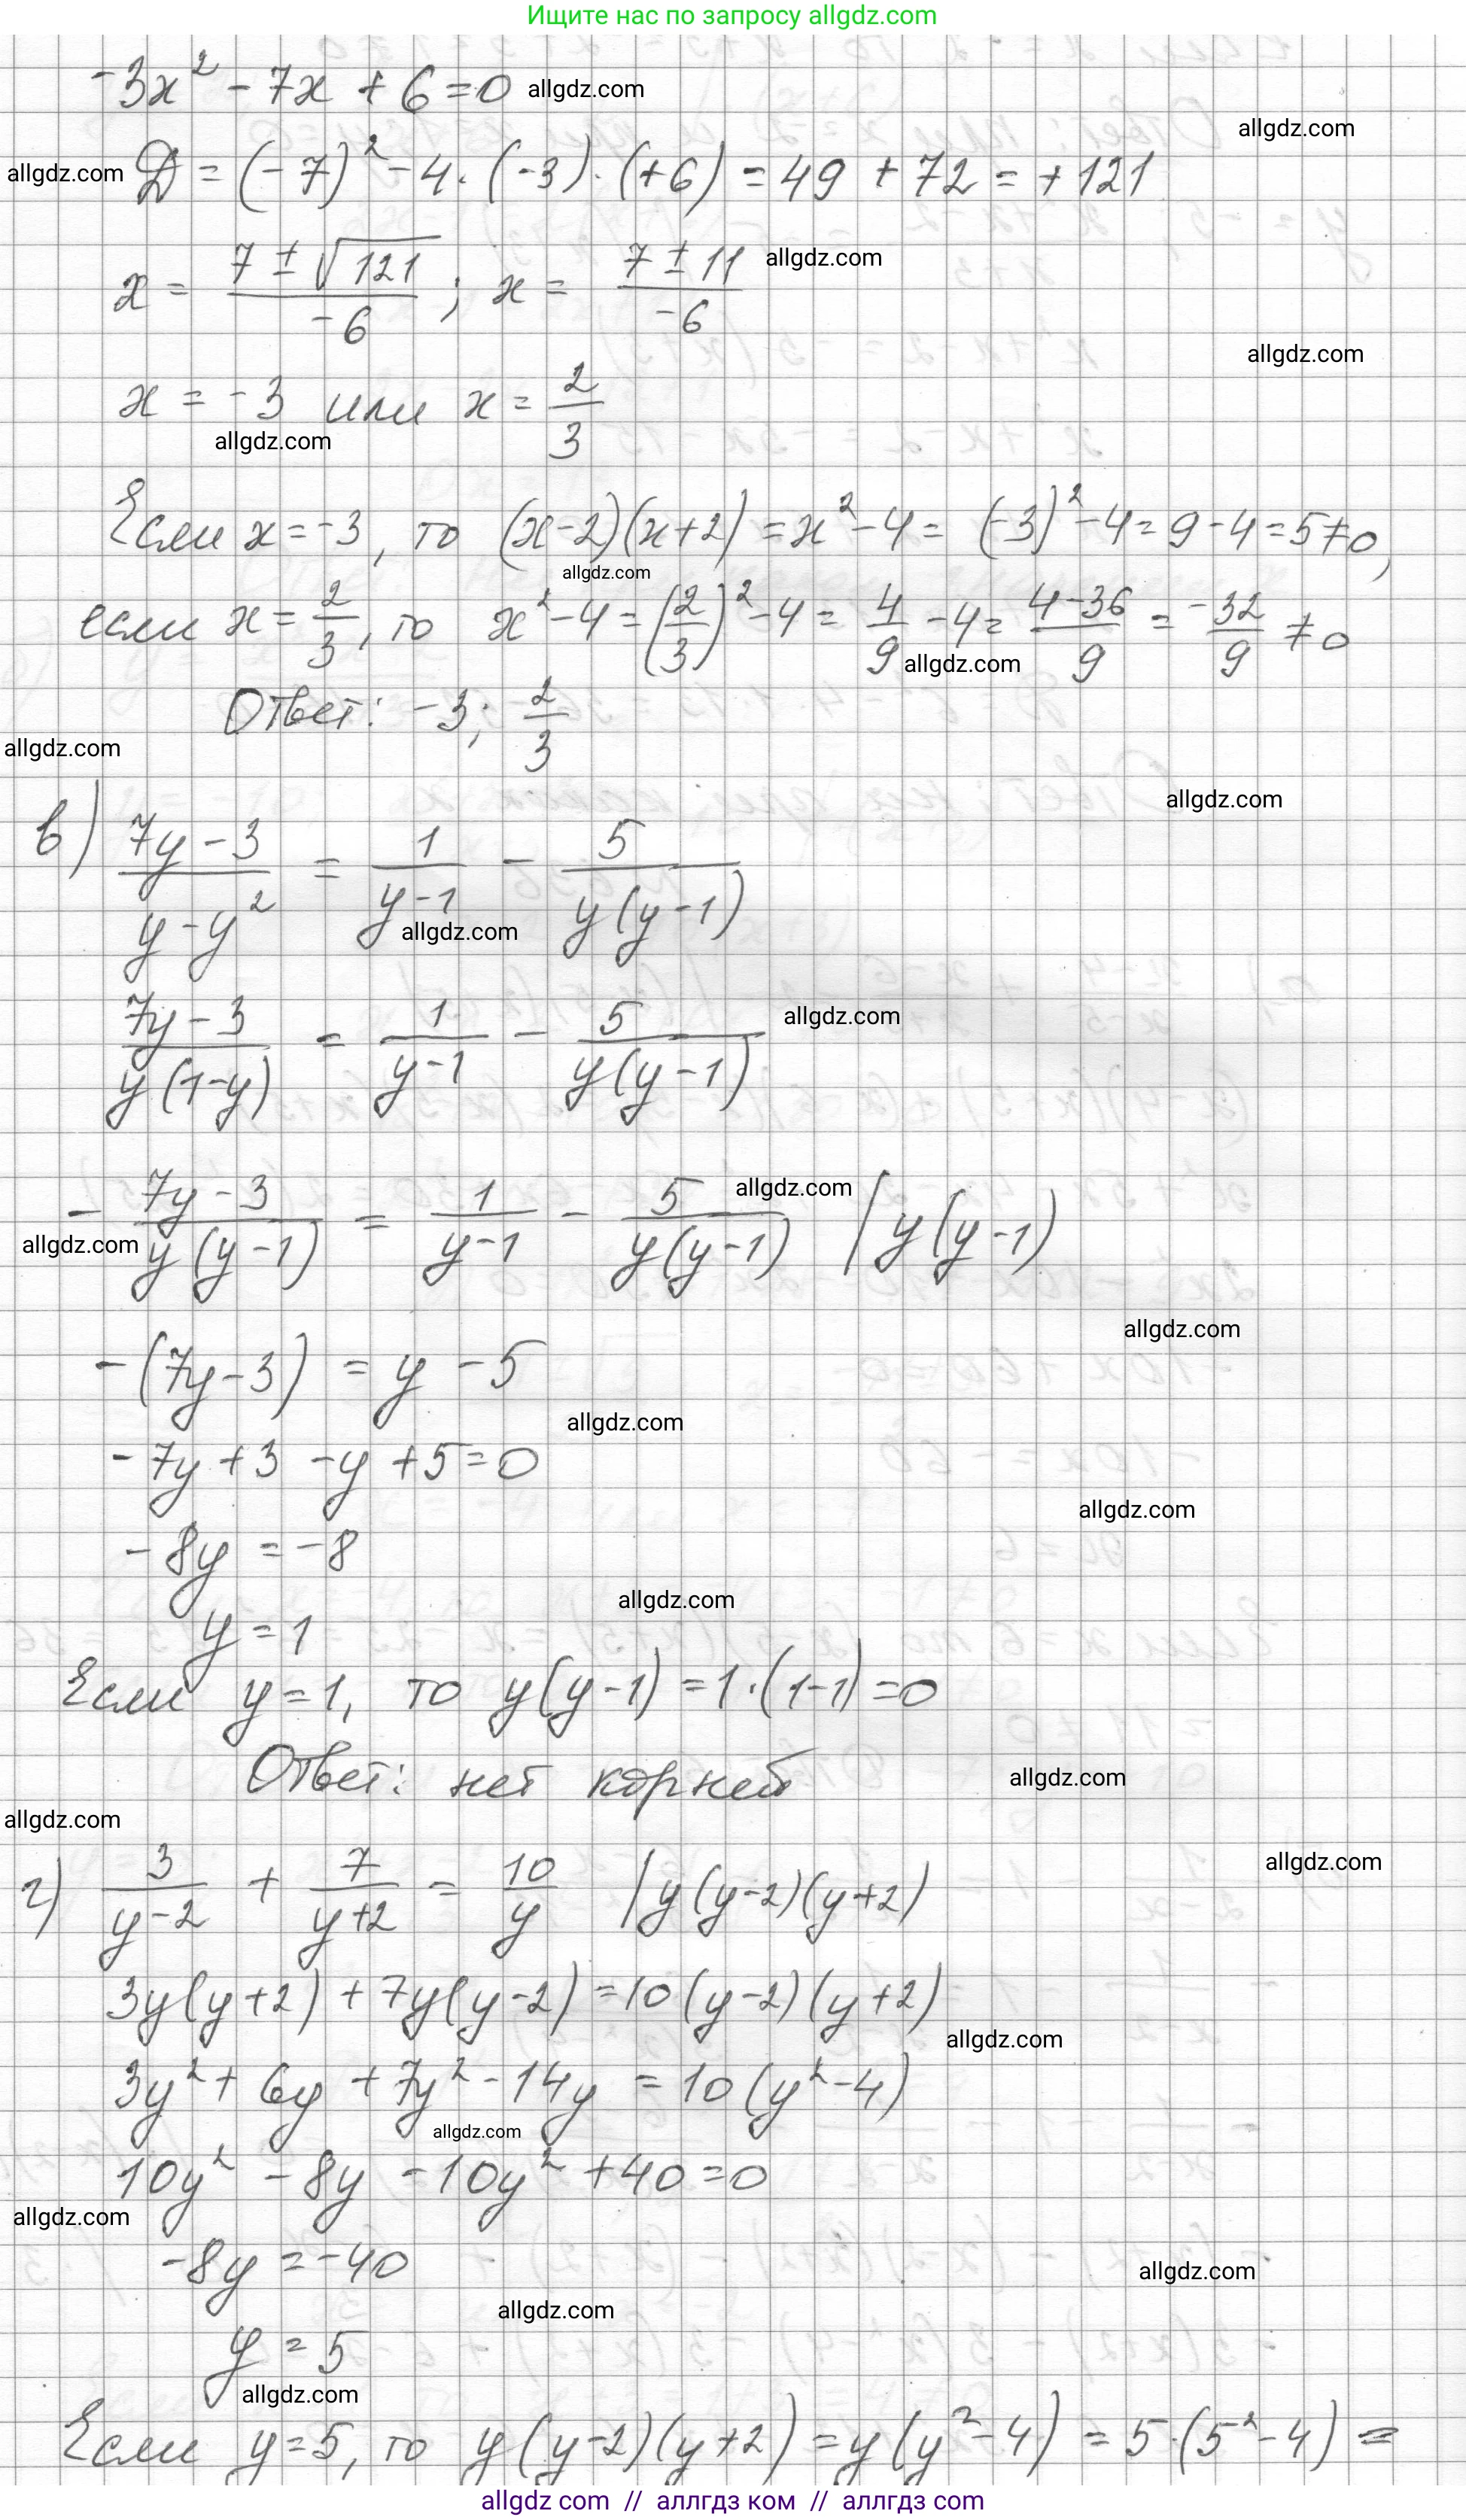 Ищите нас по запросу allgdz.com
-3x² - 7x + 6 = 0 allgdz.com
allgdz.com
allgdz.com D = (-7)² - 4 · (-3) · (+6) = 49 + 72 = +121
x = (7 ± √121)/(-6) ; x = (7 ± 11)/(-6) allgdz.com
allgdz.com
x = -3 или x = 2/3
allgdz.com
Если x = -3, то (x-2)(x+2) = x² - 4 = (-3)² - 4 = 9 - 4 = 5 ≠ 0,
allgdz.com
если x = 2/3, то x² - 4 = (2/3)² - 4 = 4/9 - 4 = (4-36)/9 = -32/9 ≠ 0
allgdz.com
Ответ: -3; 2/3
allgdz.com
allgdz.com
в) (7y-3)/(y-y²) = 1/(y-1) - 5/(y(y-1))
allgdz.com
(7y-3)/(y(1-y)) = 1/(y-1) - 5/(y(y-1)) allgdz.com
allgdz.com
-(7y-3)/(y(y-1)) = 1/(y-1) - 5/(y(y-1)) | y(y-1)
allgdz.com
allgdz.com
-(7y-3) = y - 5
allgdz.com
-7y + 3 - y + 5 = 0
allgdz.com
-8y = -8
allgdz.com
y = 1
Если y = 1, то y(y-1) = 1·(1-1) = 0
Ответ: нет корней allgdz.com
allgdz.com
allgdz.com
г) 3/(y-2) + 7/(y+2) = 10/y | y(y-2)(y+2)
3y(y+2) + 7y(y-2) = 10(y-2)(y+2)
allgdz.com
3y² + 6y + 7y² - 14y = 10(y²-4)
allgdz.com
10y² - 8y - 10y² + 40 = 0
allgdz.com
-8y = -40
allgdz.com
allgdz.com
y = 5
allgdz.com
Если y = 5, то y(y-2)(y+2) = y(y²-4) = 5·(5²-4) =
allgdz com // аллгдз ком // allgdz com